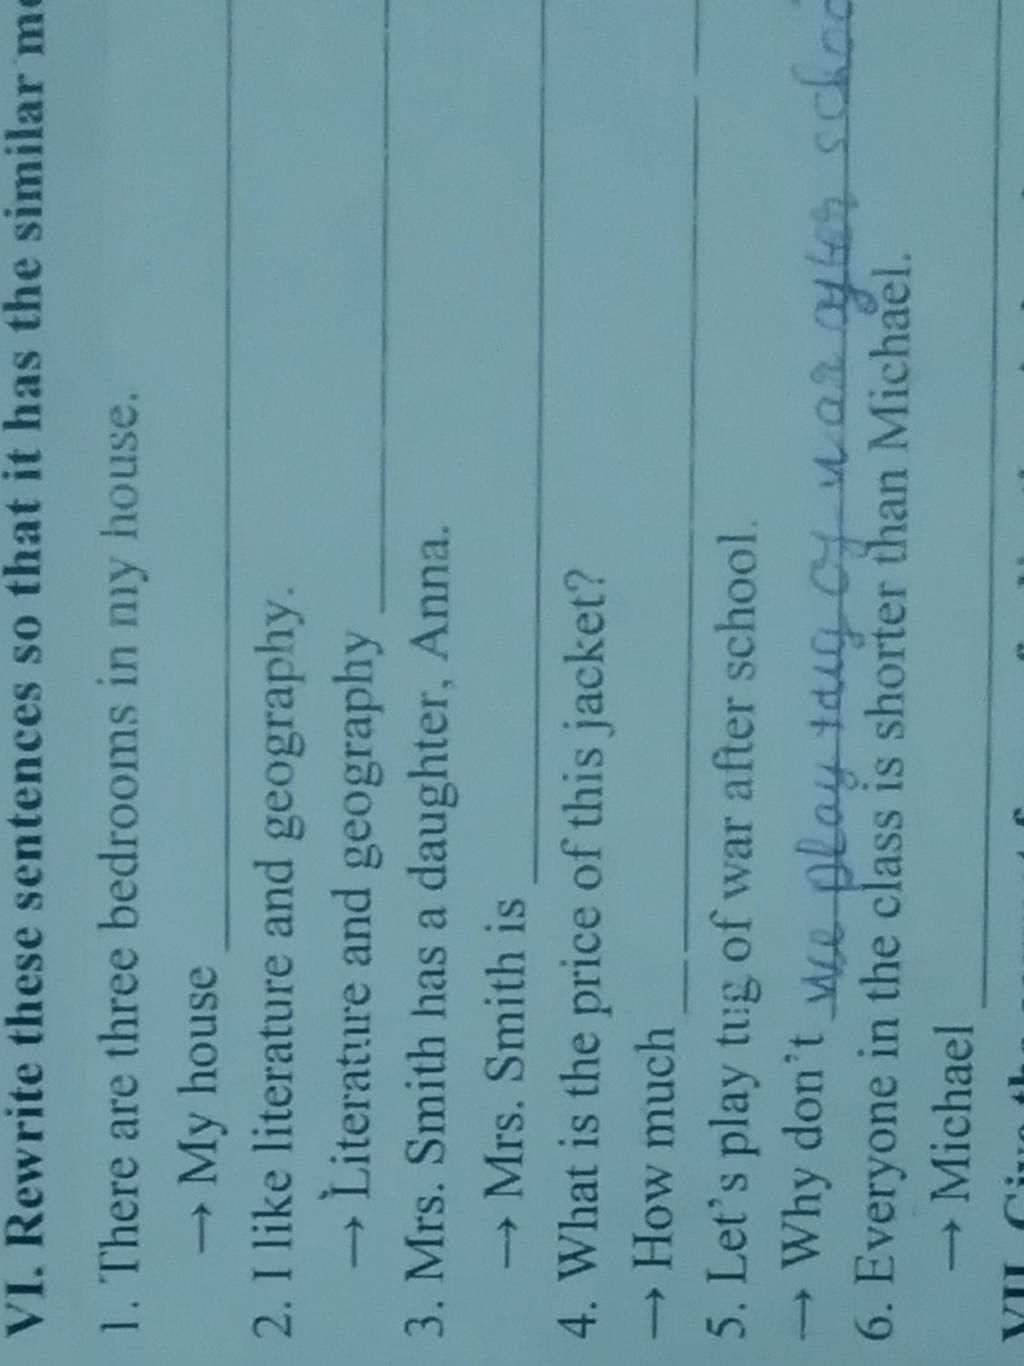 VI. Rewrite these sentences so that it has the similar
1. There are three bedrooms in my house.
→ My house
2. I like literature and geography.
→ Literature and geography
3. Mrs. Smith has a daughter, Anna.
→ Mrs. Smith is
4. What is the price of this jacket?
→ How much
5. Let's play tug of war after school.
→ Why don't we play tug of war after schoo
6. Everyone in the class is shorter than Michael.
→ Michael
VII. Give the